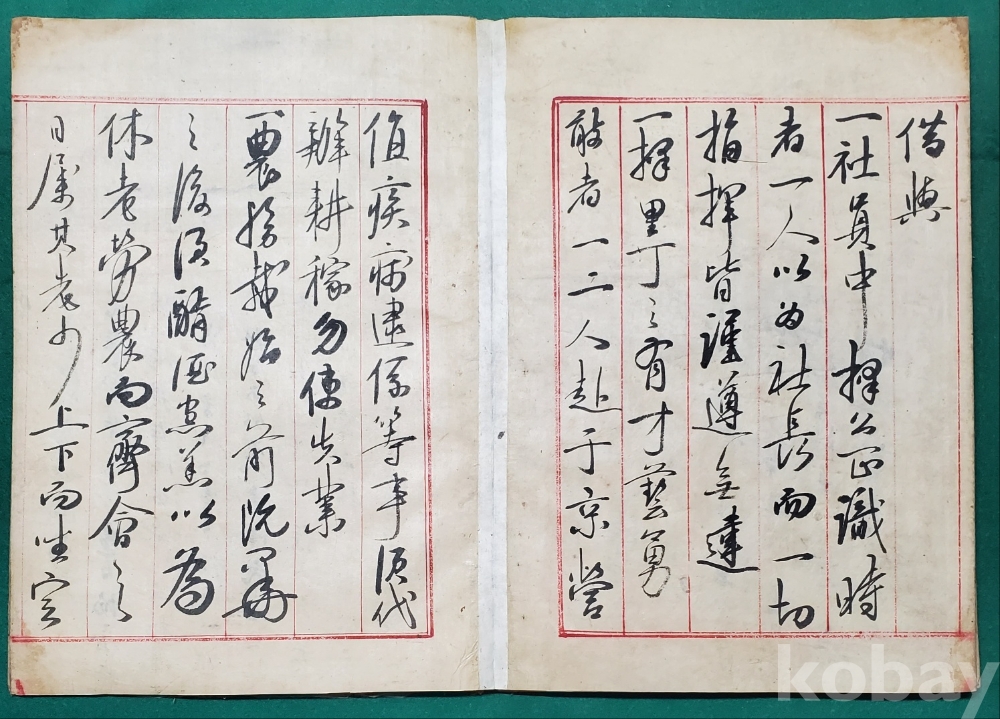 借與
一社員中擇公正識時
者一人以为社長而一切
指揮皆謹遵無違
一擇里丁之有才藝勇
敢者一二人赴于京營
值疾病逮係等事須代
辦耕稼勿使失業
一農務載始之前既畢
之後須酾酒烹羔以為
休老勞農而齊會之
日属其老少上下而坐定
kobay